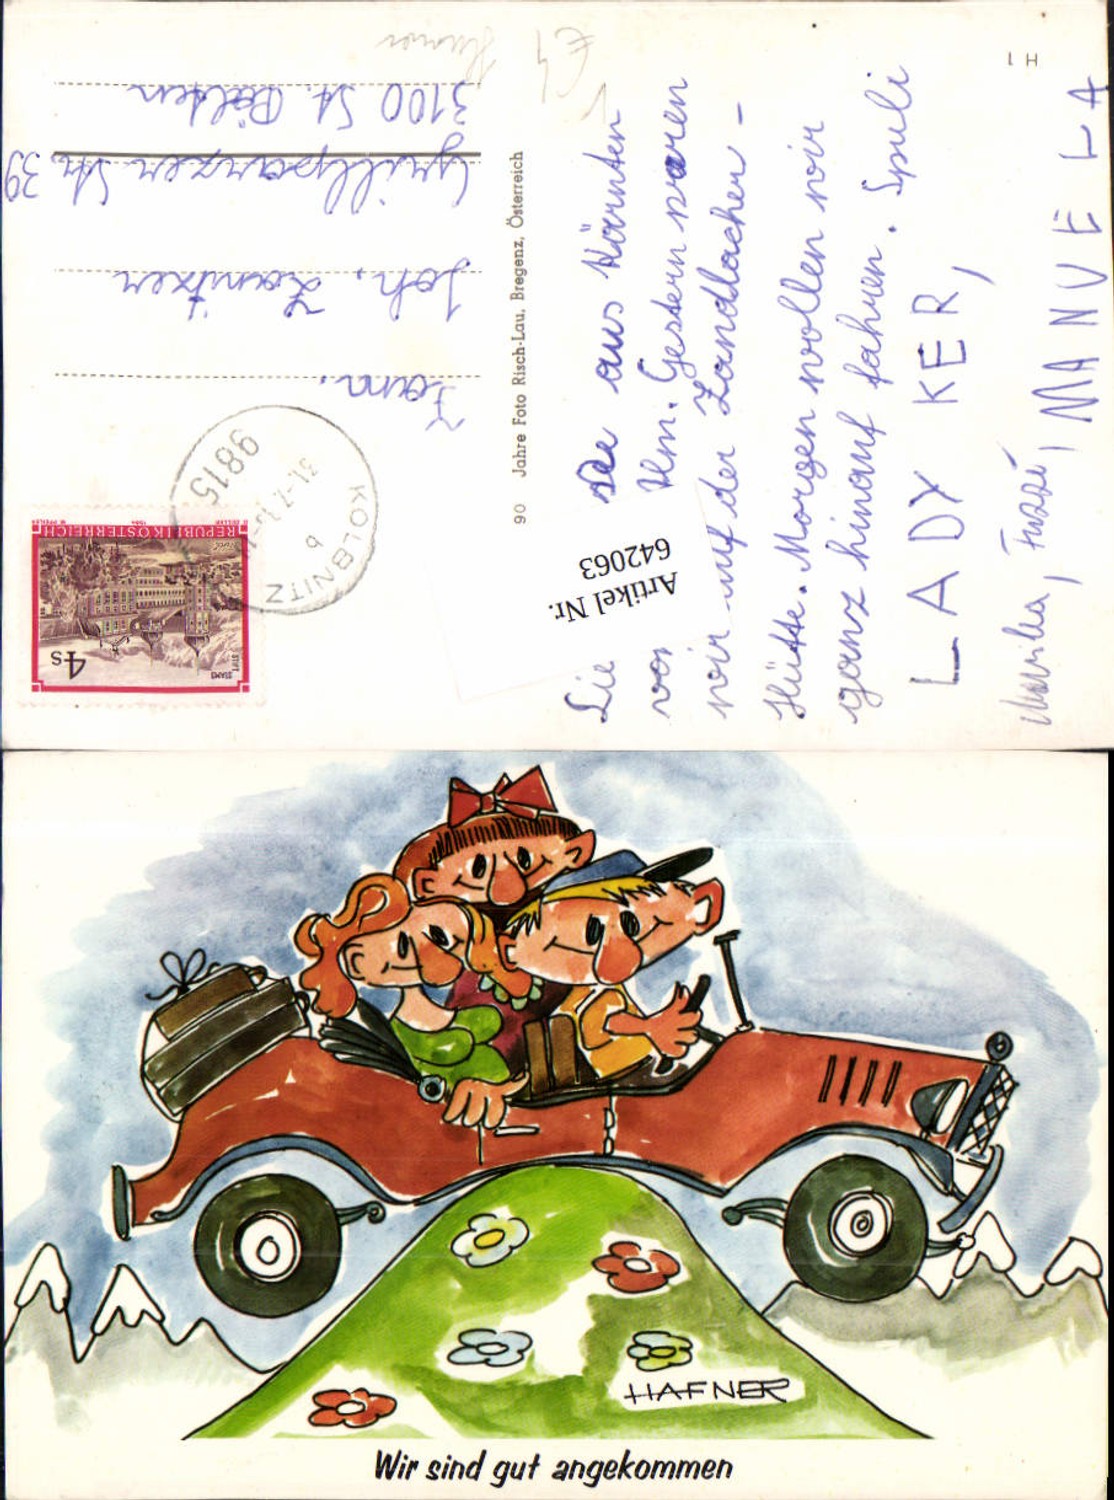 H 1
Humor
Liebe aus Kärnten
von Ulm. Gestern waren
wir auf der Zandlacher-
Hütte. Morgen wollen wir
ganz hinauf fahren.
LADY KER,
MANUELA
90 Jahre Foto Risch-Lau, Bregenz, Österreich
Fam.
Joh. Zanitzer
Grillparzer Str 39
3100 St. Pölten
REPUBLIK ÖSTERREICH
4s
STIFT
STAMS
9815
KOLBNITZ
b
Artikel Nr.
642063
HAFNER
Wir sind gut angekommen